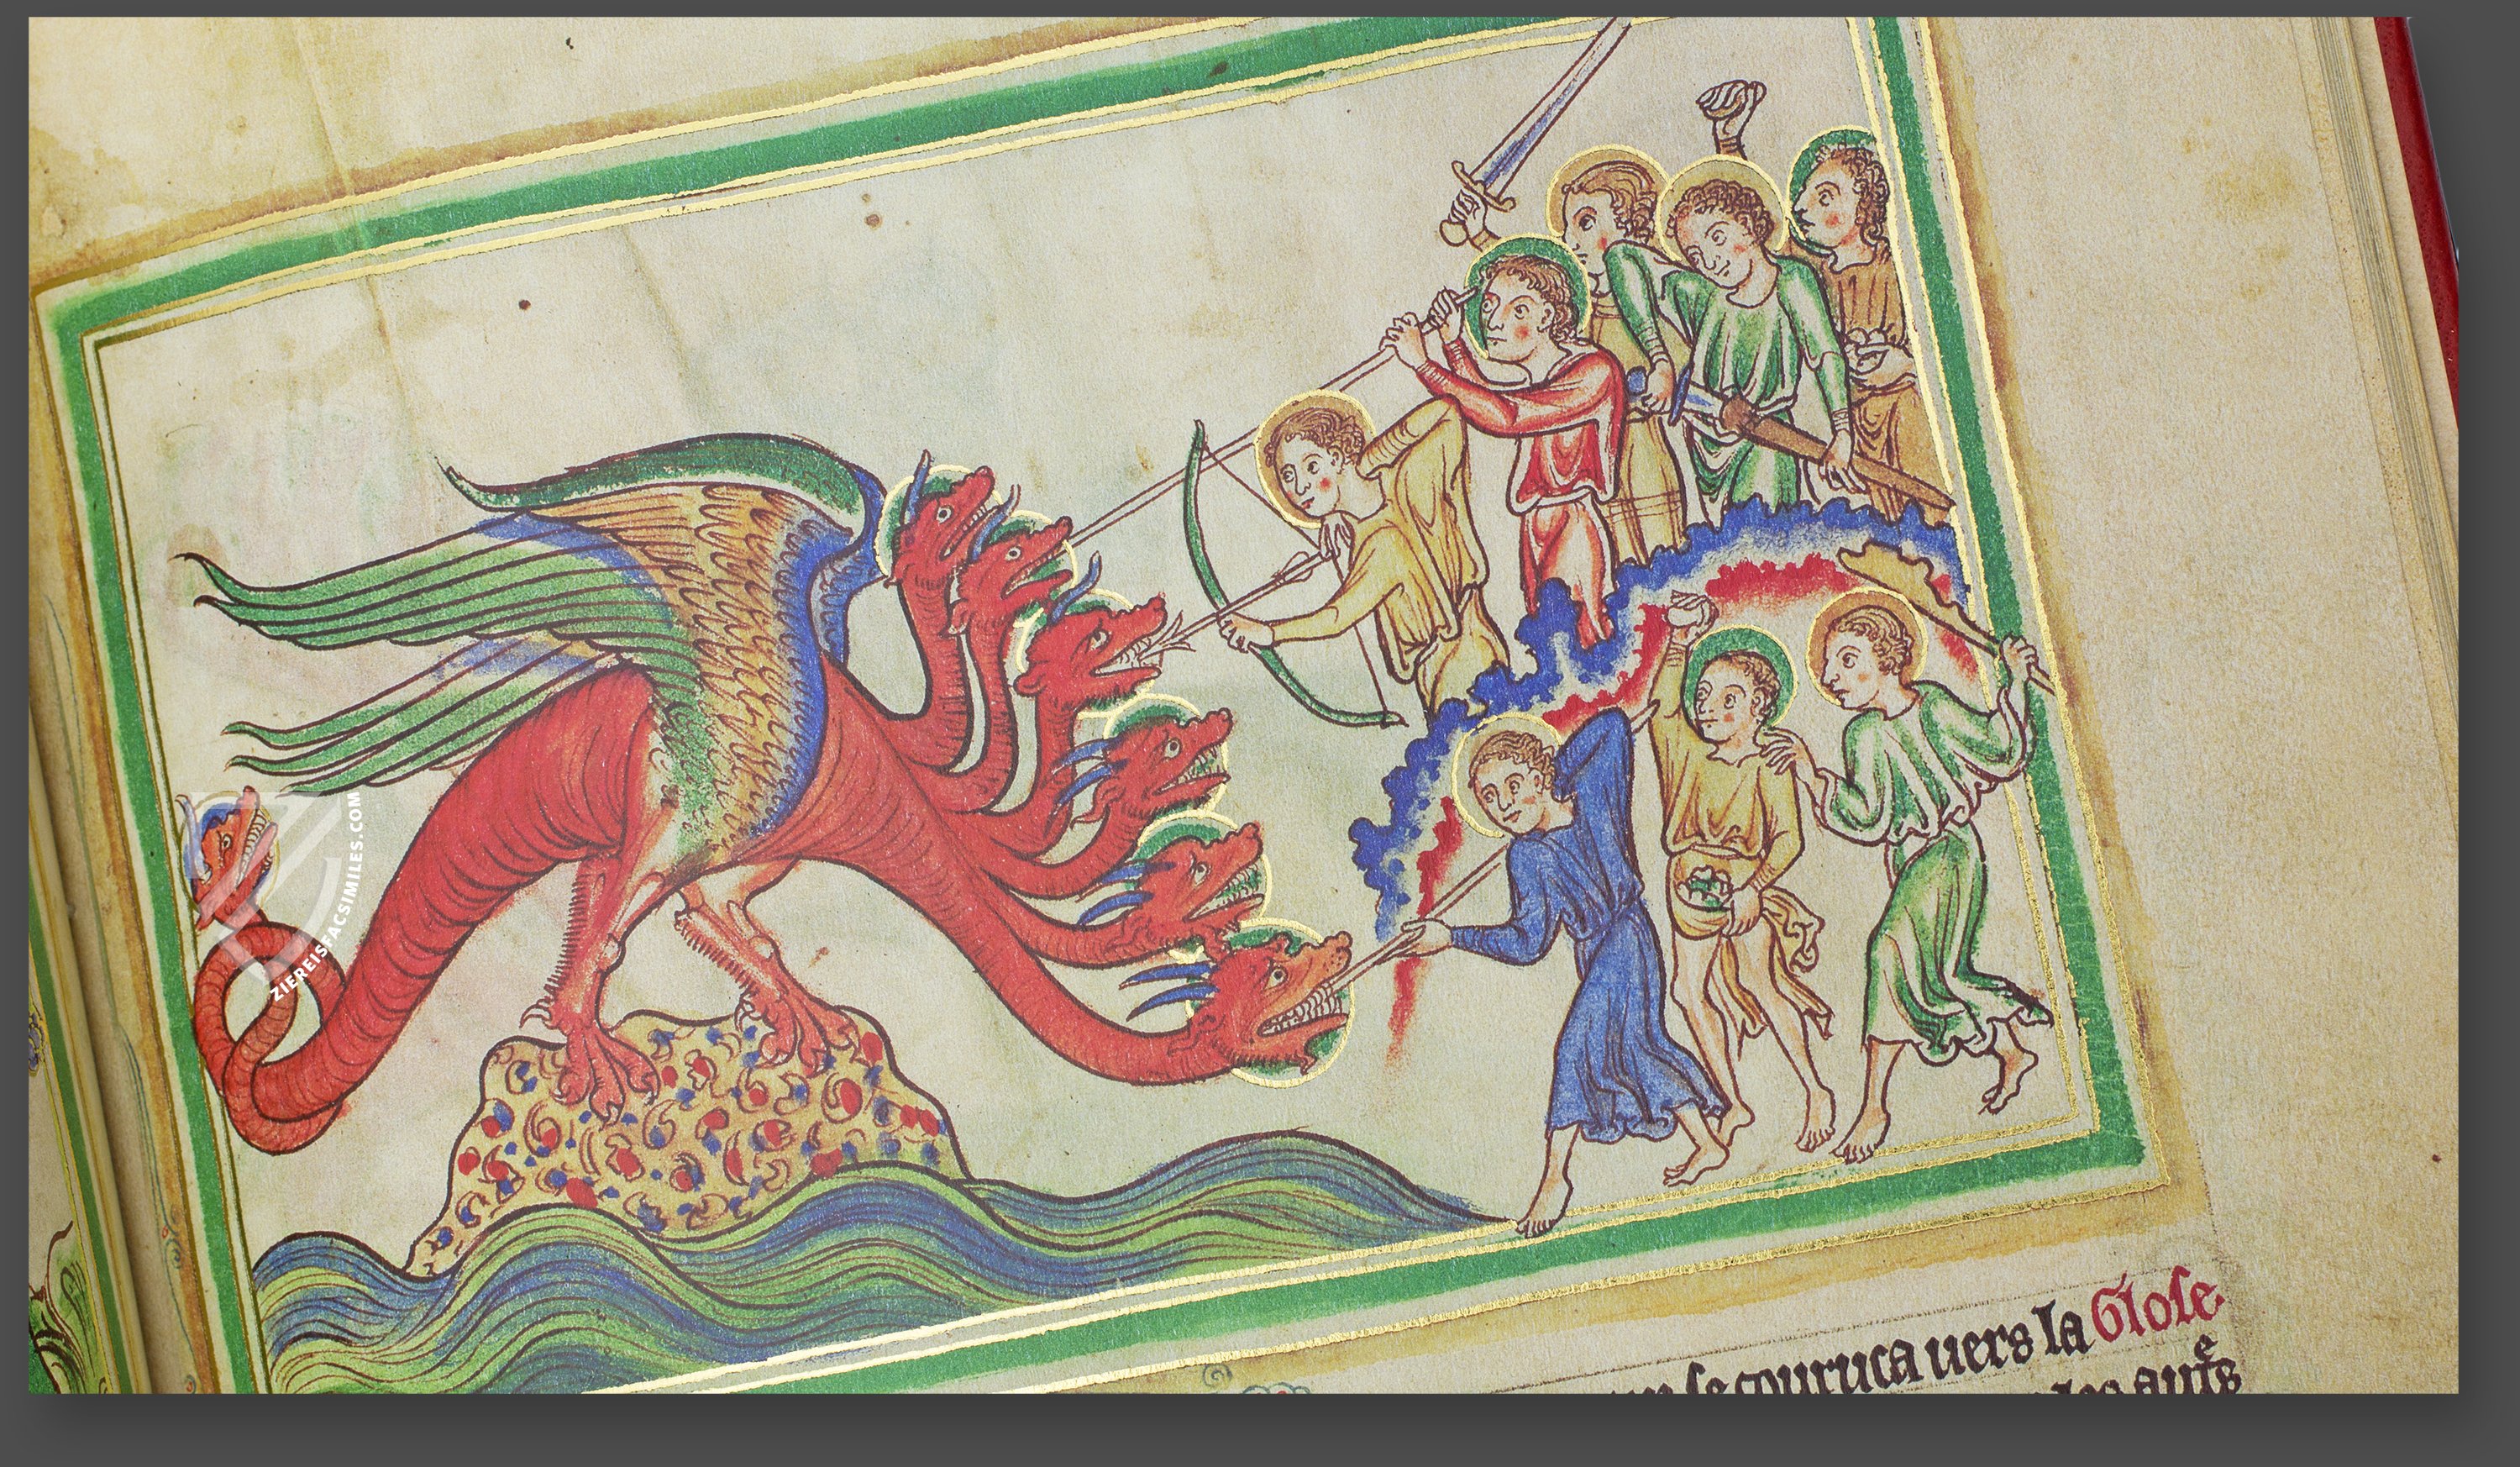 ZIEREISFACSIMILES.COM
se couruca uers la Glose